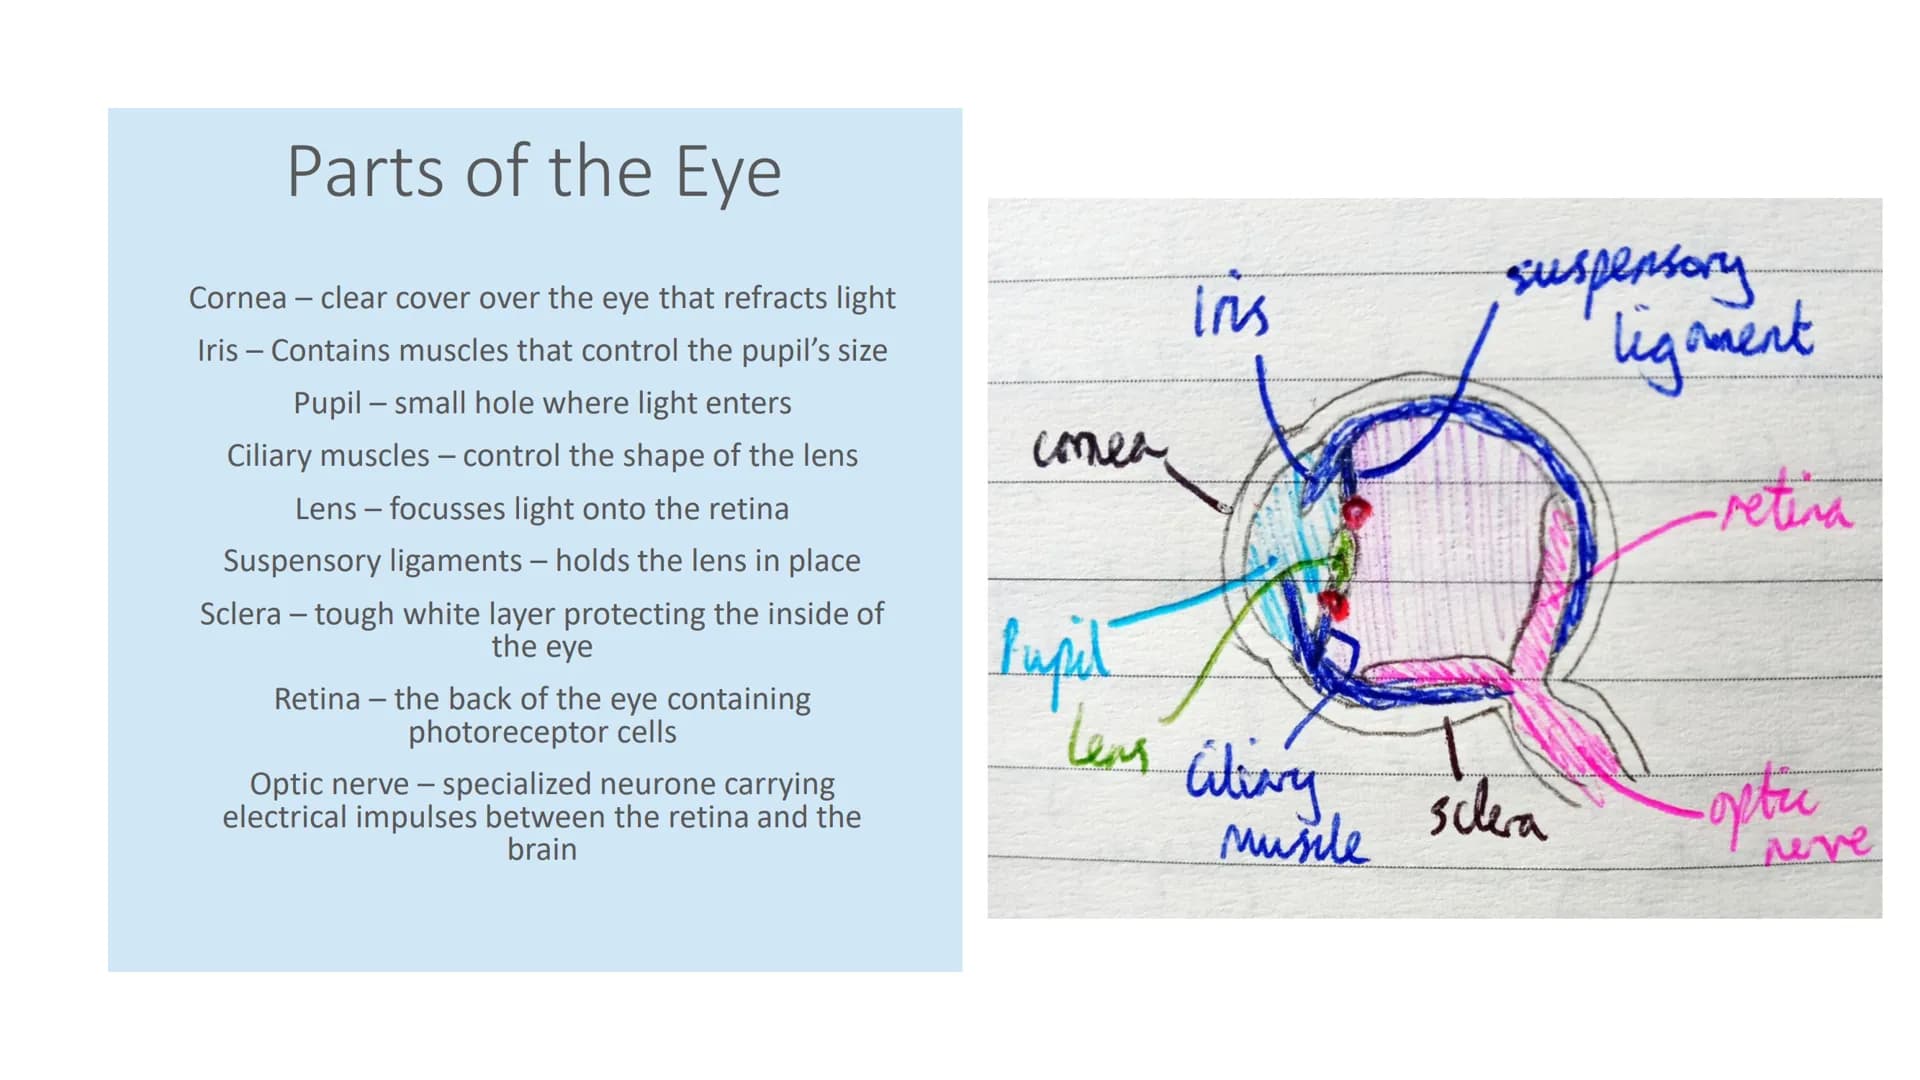 Parts of the Eye
Cornea – clear cover over the eye that refracts light
Iris – Contains muscles that control the pupil's size
Pupil – small hole where light enters
Ciliary muscles – control the shape of the lens
Lens – focusses light onto the retina
Suspensory ligaments – holds the lens in place
Sclera – tough white layer protecting the inside of
the eye
Retina – the back of the eye containing
photoreceptor cells
Optic nerve – specialized neurone carrying
electrical impulses between the retina and the
brain
Iris
suspensory
ligament
cornea
retina
Pupil
lens
Ciliary
muscle
sclera
optic
nerve